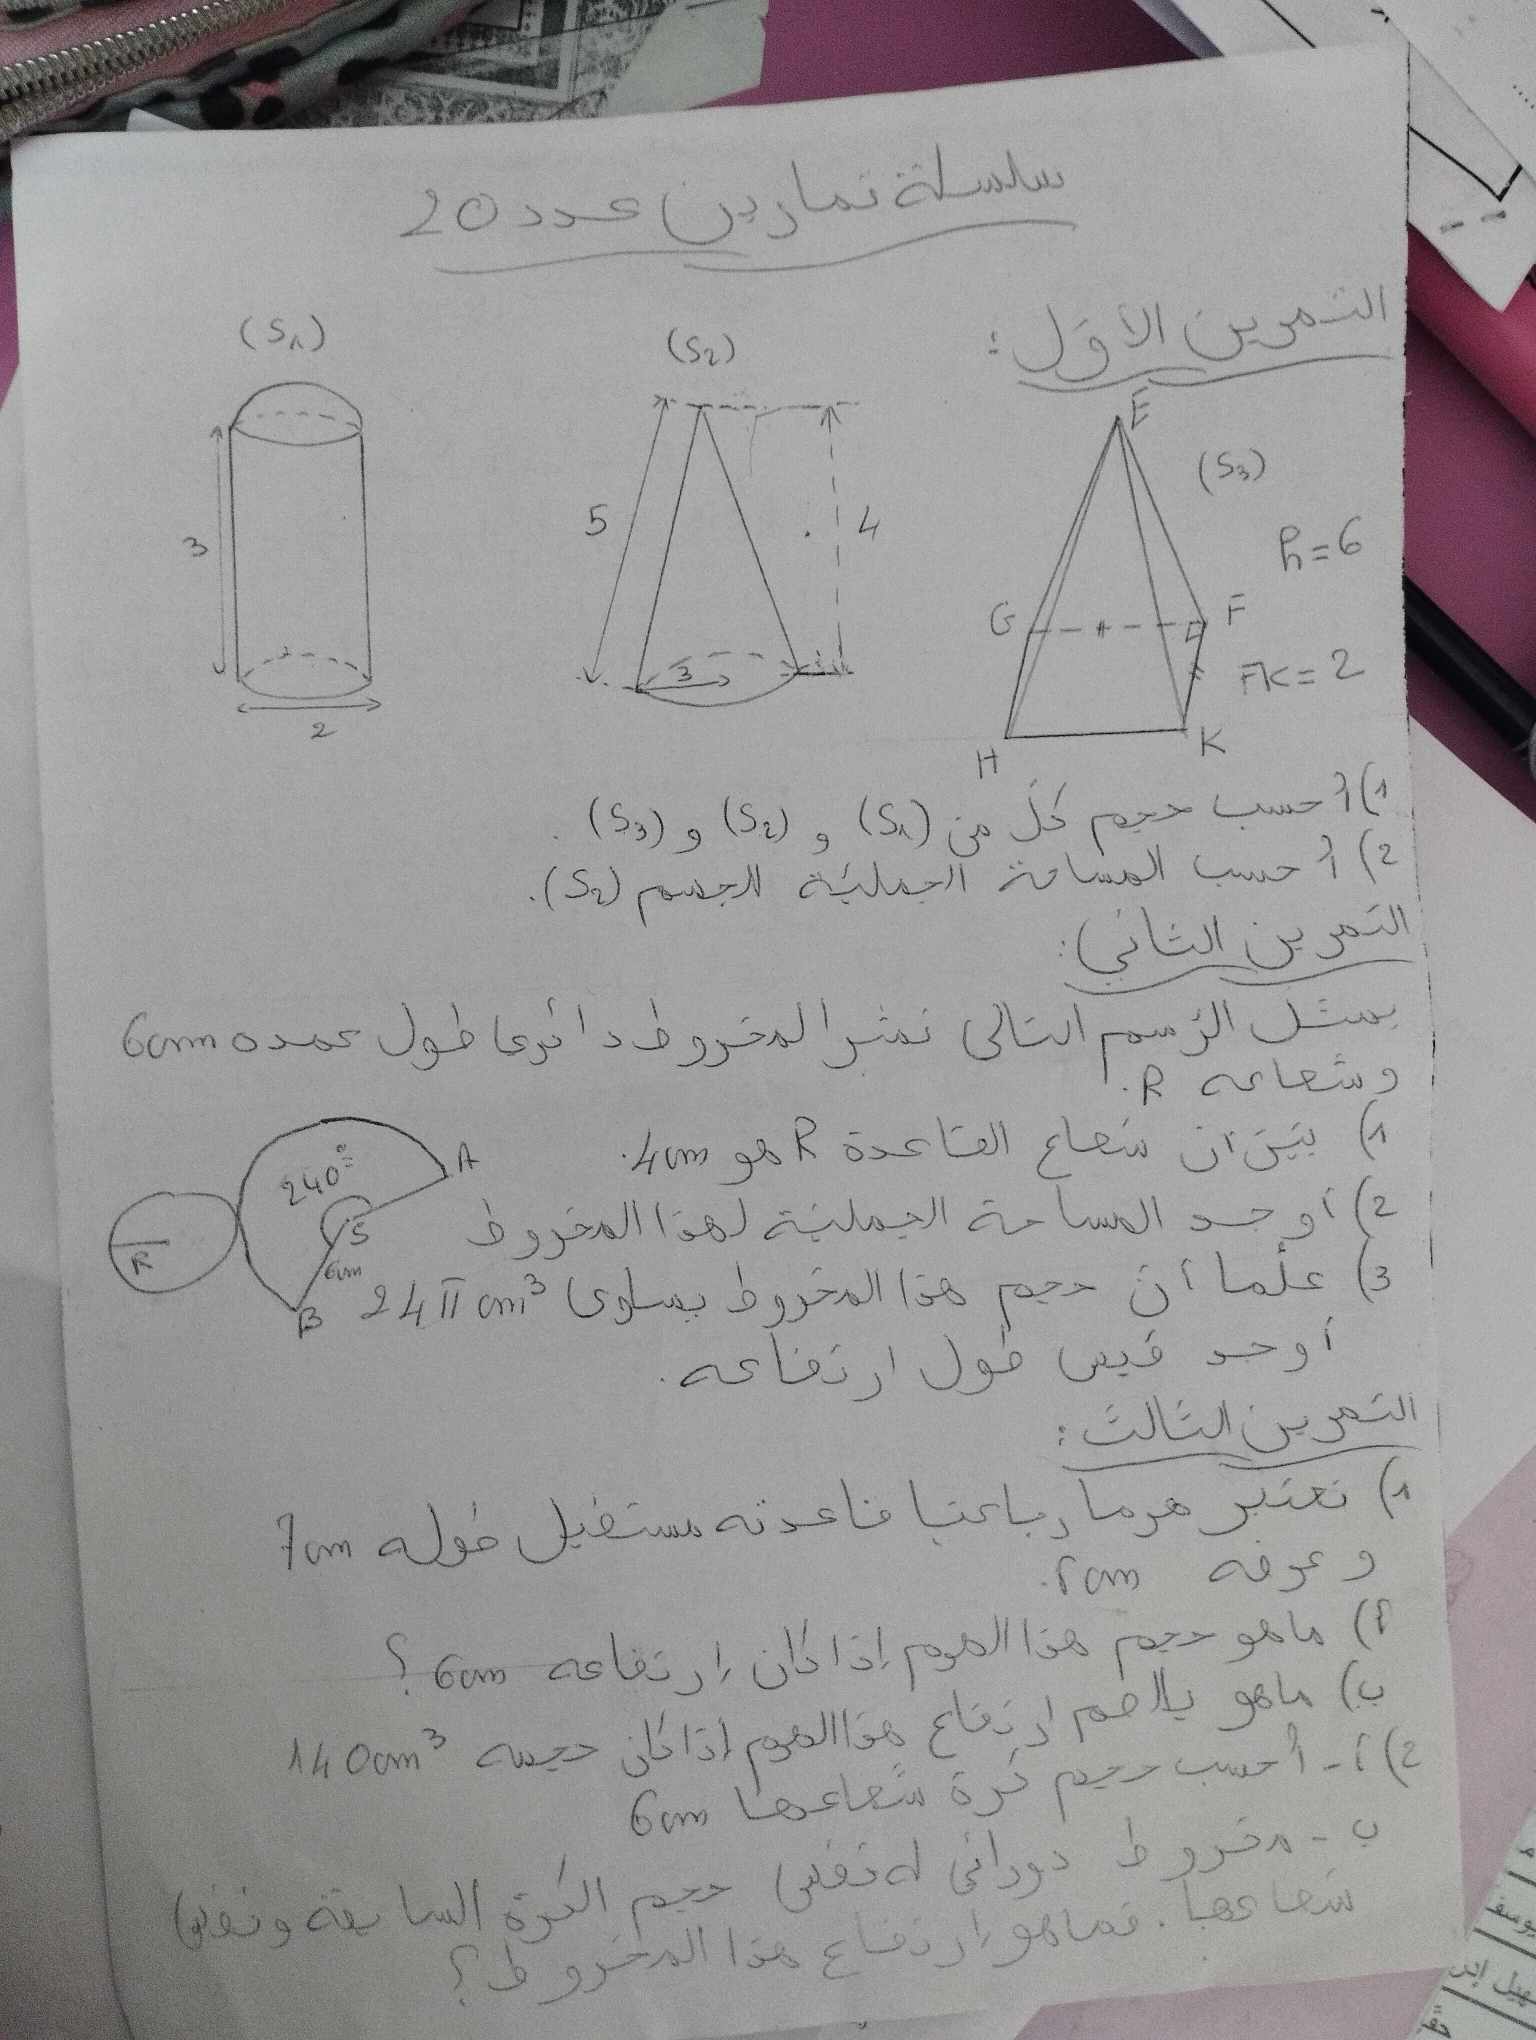 سلسلة تمارين عدد 20
التمرين الأوّل:
(S1)
(S2)
(S3)
3
2
5
4
3
E
G
F
H
K
h=6
FK=2
1) أحسب حجم كلّ من (S1) و (S2) و (S3).
2) أحسب المساحة الجمليّة للجسم (S2).
التمرين الثاني:
يمثل الرّسم التالي نشرا لمخروط دائري طول عمده 6cm
وشعاعه R.
1) بيّن أن شعاع القاعدة R هو 4cm.
2) أوجد المساحة الجمليّة لهذا المخروط
3) علما أن حجم هذا المخروط يساوي 24π cm³
أوجد قيس طول ارتفاعه.
240°
A
S
6cm
B
R
التمرين الثالث:
1) نعتبر هرما رباعيا قاعدته مستطيل طوله 7cm
وعرضه cm.
أ) ما هو حجم هذا الهرم إذا كان إرتفاعه 6cm ؟
ب) ما هو ارتفاع هذا الهرم إذا كان حجمه 140cm³
2) أ- أحسب حجم كرة شعاعها 6cm
ب- مخروط دوراني له نفس حجم الكرة السابقة ونفس
شعاعها. فما هو إرتفاع هذا المخروط ؟